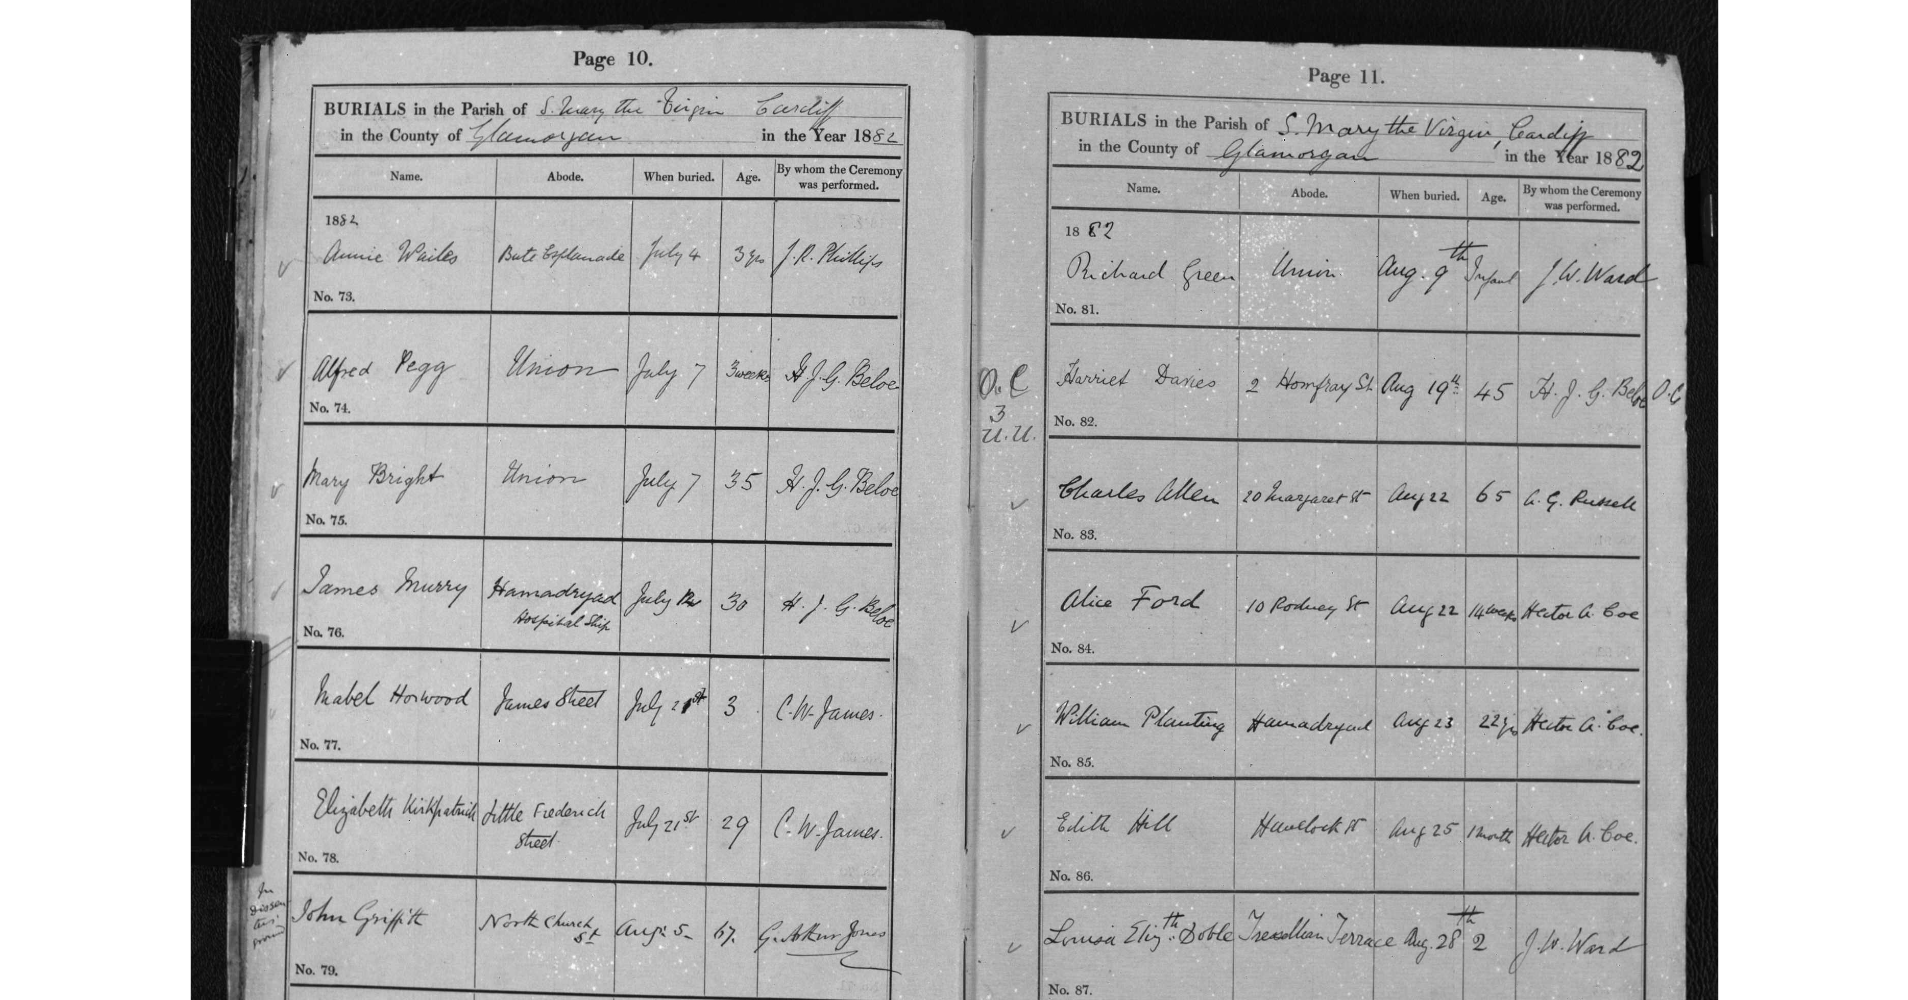 Page 10.
BURIALS in the Parish of S. Mary the Virgin Cardiff
in the County of Glamorgan in the Year 1882
Name. Abode. When buried. Age. By whom the Ceremony was performed.
1882
Annie Wailes Bute Esplanade July 4 3 yrs J. R. Phillips
No. 73.
Alfred Pegg Union July 7 3 weeks H. J. G. Beloe
No. 74.
Mary Bright Union July 7 35 H. J. G. Beloe
No. 75.
James Murry Hamadryad July 12 30 H. J. G. Beloe
Hospital Ship
No. 76.
Mabel Horwood James Street July 21st 3 C. W. James.
No. 77.
Elizabeth Kirkpatrick Little Frederick July 21st 29 C. W. James.
Street
No. 78.
In
Dissen
ters'
ground
John Griffith North Church Aug: 5 67. G. Arthur Jones
St
No. 79.
Page 11.
BURIALS in the Parish of S. Mary the Virgin, Cardiff
in the County of Glamorgan in the Year 1882
Name. Abode. When buried. Age. By whom the Ceremony was performed.
1882
Richard Green Union Aug. 9th Infant J. W. Ward
No. 81.
O. C
3
U. U.
Harriet Davies 2 Homfray St. Aug 19th 45 H. J. G. Beloe O. C
No. 82.
Charles Allen 20 Margaret St Aug 22 65 A. G. Russell
No. 83.
Alice Ford 10 Rodney St Aug 22 14 weeks Hector A. Coe
No. 84.
William Planting Hamadryad Aug 23 22 yrs Hector A. Coe.
No. 85.
Edith Hill Havelock St Aug 25 1 month Hector A. Coe.
No. 86.
Louisa Elizth. Doble Tresillian Terrace Aug. 28th 2 J. W. Ward
No. 87.